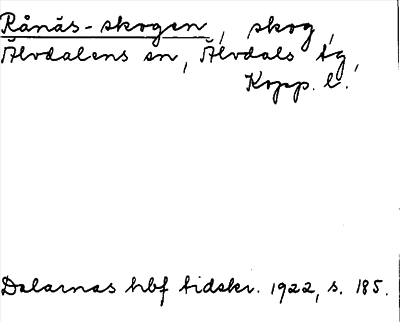 Rånäs-skogen, skog,
Älvdalens sn, Älvdals tg,
Kopp. l.
Dalarnas hbf tidskr. 1922, s. 185.